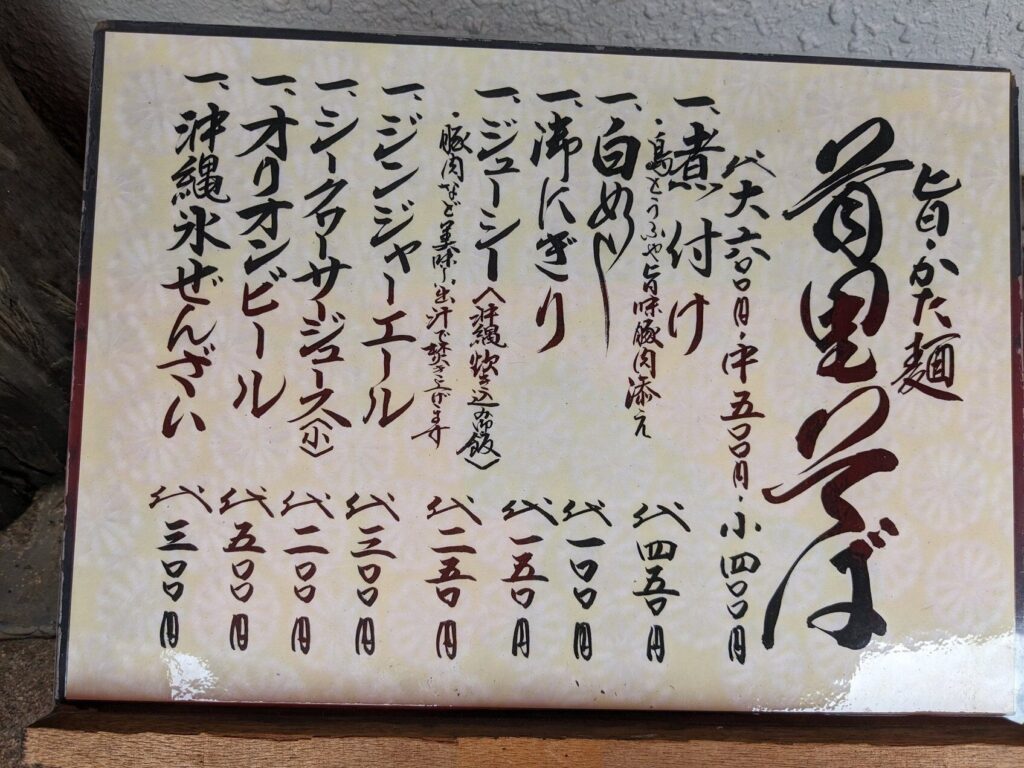 旨・かた麺
首里そば
代大六〇〇円・中五〇〇円・小四〇〇円
一、煮付け 代四五〇円
・島とうふや旨味豚肉添え
一、白めし 代一〇〇円
一、御にぎり 代一五〇円
一、ジューシー〈沖縄炊き込み御飯〉 代二五〇円
・豚肉など美味しい出汁で炊き上げます
一、ジンジャーエール 代三〇〇円
一、シークヮーサージュース〈小〉 代二〇〇円
一、オリオンビール 代五〇〇円
一、沖縄氷ぜんざい 代三〇〇円